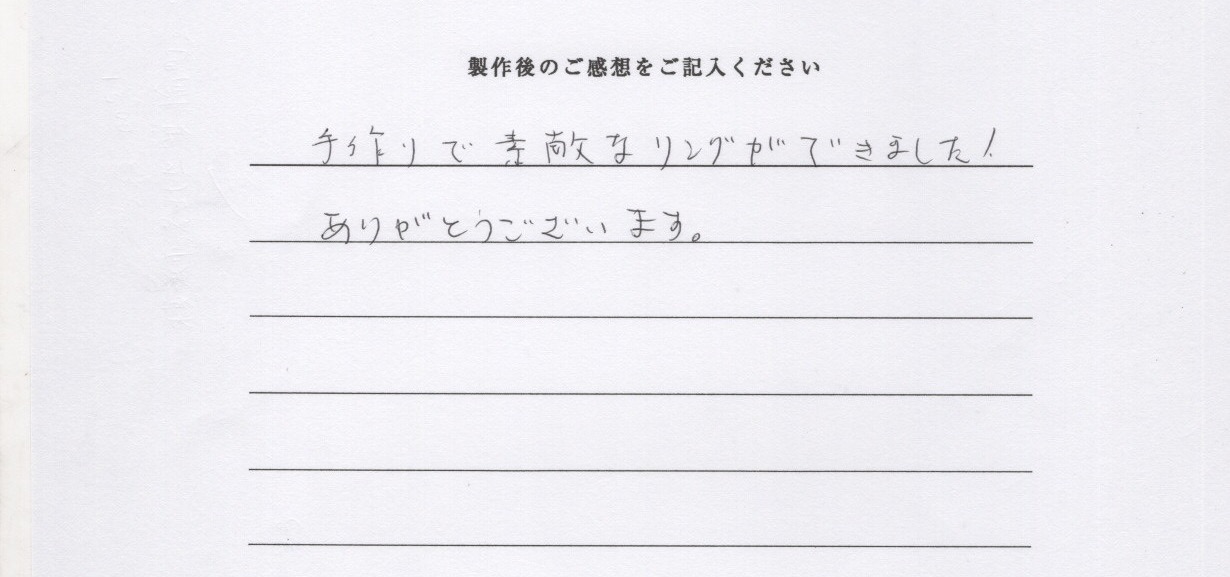 製作後のご感想をご記入ください
手作りで素敵なリングができました!
ありがとうございます。